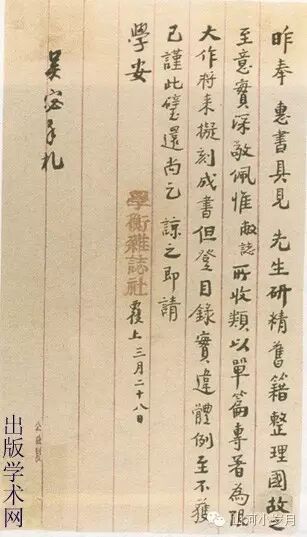 昨奉 惠書具見 先生研精舊籍整理國故之
至意實深敬佩惟敝誌所收類以單篇專著為限
大作將來擬刻成書但登目錄實違體例至不獲
已謹此璧還尚乞 諒之即請
學安
學衡雜誌社 覆上 三月二十八日
吴宓手札
出版学术网
山河小岁月